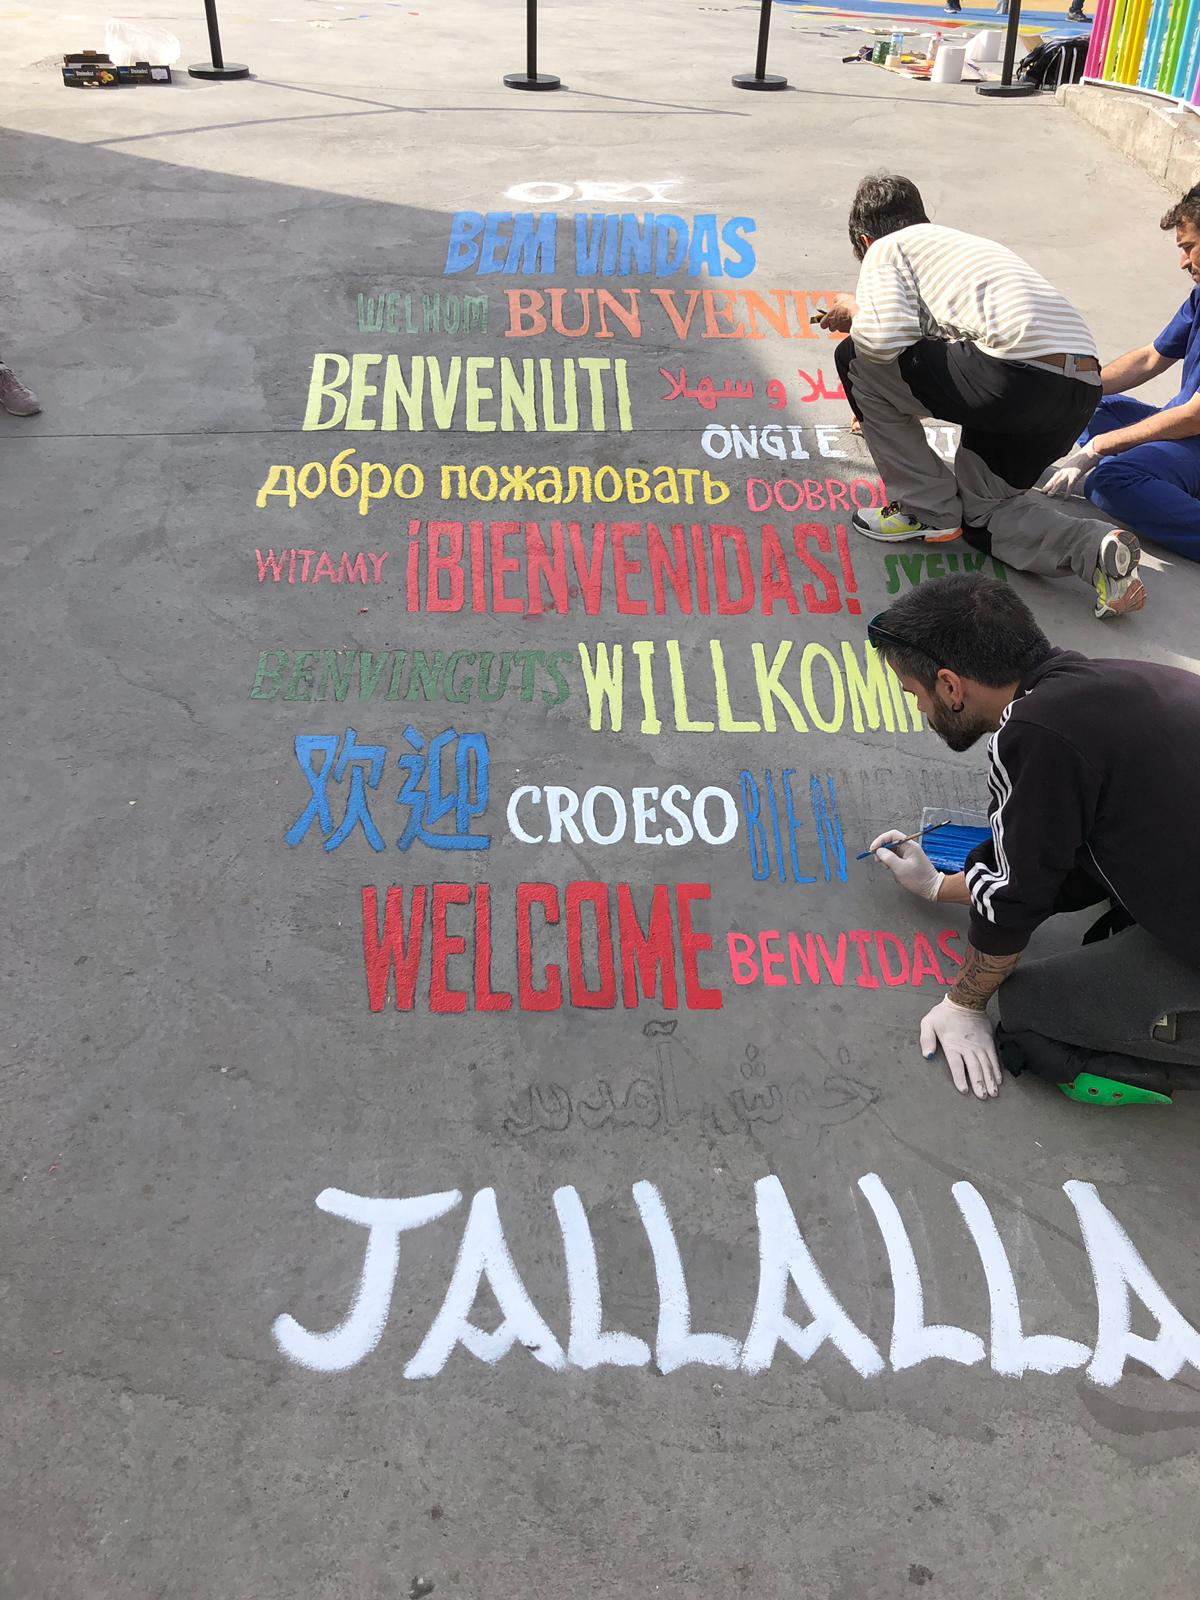 ORY
BEM VINDAS
WELKOM BUN VENIT
BENVENUTI و سهلا
ONGI E
добро пожаловать DOBRO
WITAMY ¡BIENVENIDAS! SVEIKI
BENVINGUTS WILLKOMM
欢迎 CROESO BIEN
WELCOME BENVIDAS
خوش آمدید
JALLALLA